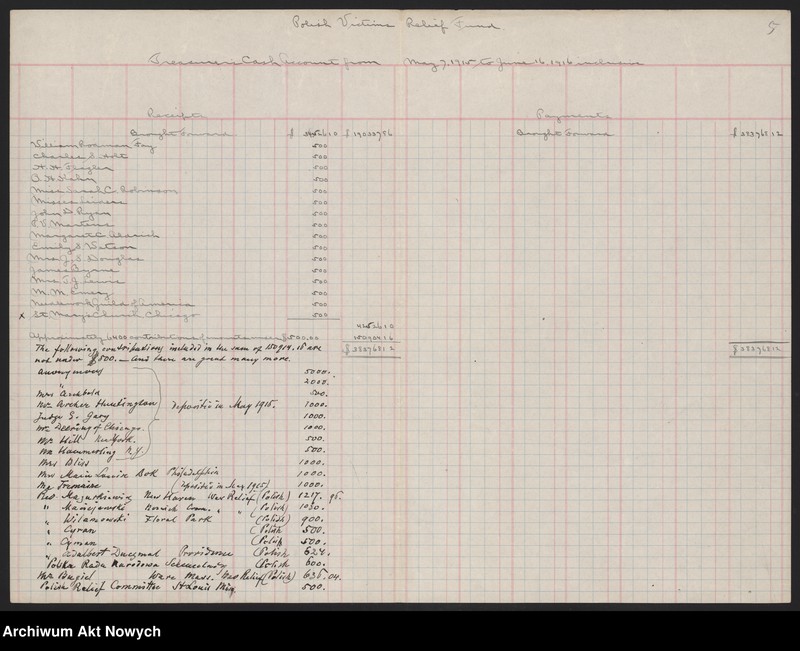 Polish Victims Relief Fund
5
Treasurer's Cash Account from May 7, 1915, to June 16, 1916 inclusive
Receipts Payments
Brought Forward $ $ Brought Forward $ 3339681 2
William Fay 500
Charles S. Holt 500
H. H. Flagler 500
O. H. Kahn 500
Miss Sarah C. Robinson 500
Misses 500
John D. Ryan 500
Martens 500
Margaret C. Aldrich 500
Emily S Watson 500
Mrs J. S Douglas 500
James Byrne 500
Mrs T. J. Lewis 500
M. M. Emery 500
Needlework Guild of America 500
x St. Mary's Church Chicago 500
Approximately 6400 contributions of amounts under $500.00
The following contributions included in the sum of 150914.16 are
not under $500. — And there are great many more.
Anonymous 5000.
" 2000.
Mrs Archbold 500.
Mr. Archer Huntington deposited in May 1915. 1000.
Judge E. Gary 1000.
Mr Deering of Chicago. 1000.
Mr Hill New York. 500.
Mr Hammerling N.Y. 500.
Mrs Bliss 1000.
Mrs Louise Bok Philadelphia 1000.
(deposited in May 1915) 1000.
Rev. Mazurkiewicz New Haven War Relief (Polish) 1217. 95.
" Maciejewski Com. " " (Polish) 1030.
" Wilamowski Floral Park (Polish) 900.
" Cyran (Polish 500.
" Cyman (Polish 500.
" Adalbert Duczmal Providence (Polish 624.
Polska Rada Narodowa Schenectady (Polish 600.
Mr. Bugiel Ware Mass. War Relief (Polish) 635.04.
Polish Relief Committee St Louis 500.
Archiwum Akt Nowych